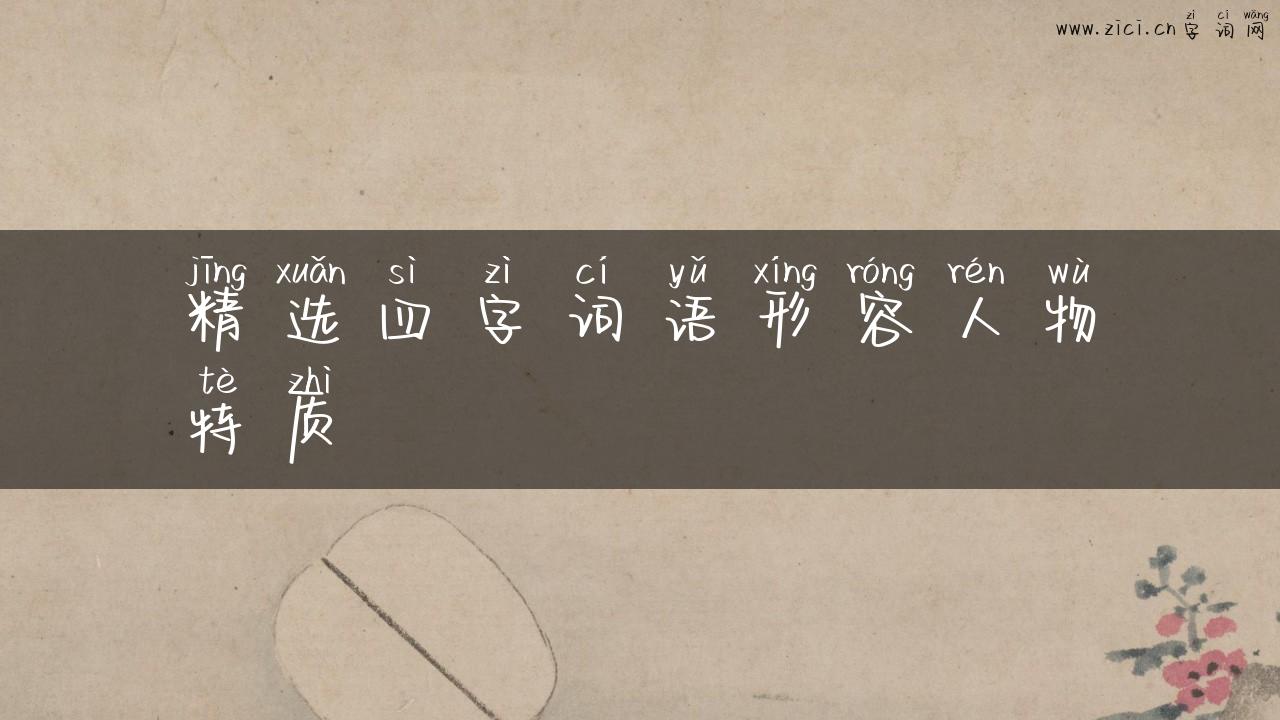 zì cí wǎng
www.zici.cn字词网
jīng xuǎn sì zì cí yǔ xíng róng rén wù
精选四字词语形容人物
tè zhì
特质